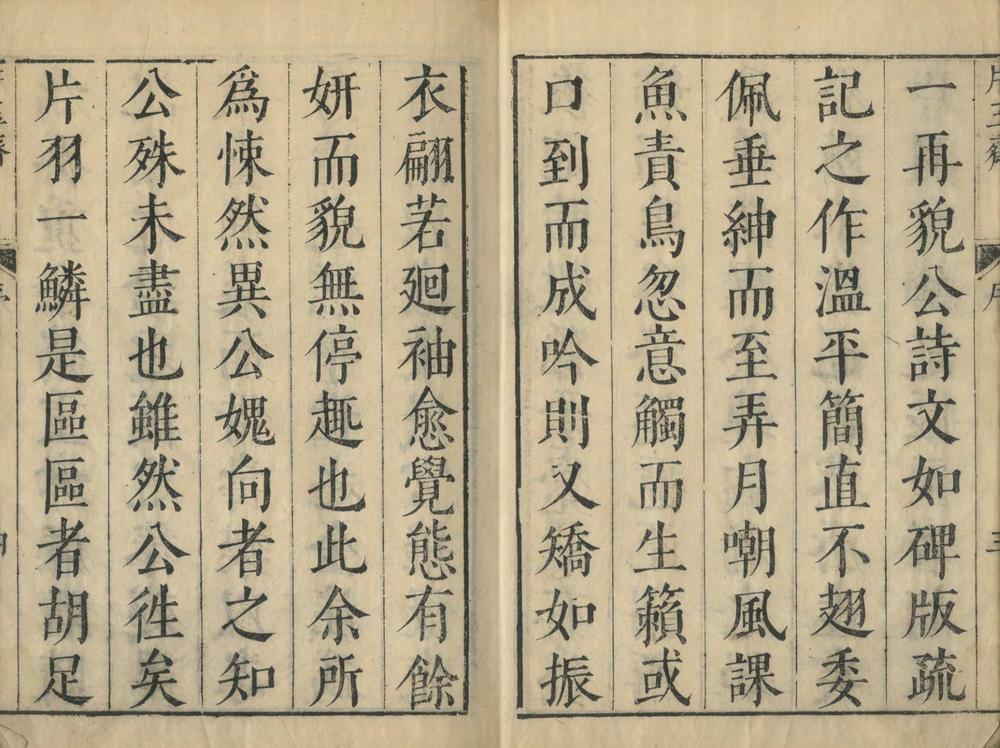 一再貌公詩文如碑版疏
記之作溫平簡直不翅委
佩垂紳而至弄月嘲風課
魚責鳥忽意觸而生籟或
口到而成吟則又矯如振
衣翩若廻袖愈覺態有餘
妍而貌無停趣也此余所
為悚然異公媿向者之知
公殊未盡也雖然公徃矣
片羽一鱗是區區者胡足